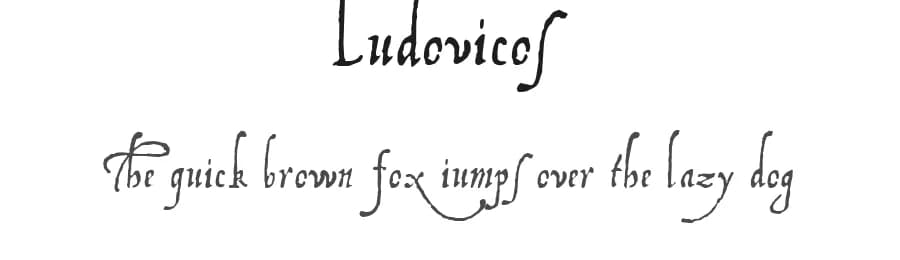 Ludovicos
The quick brown fox iumps over the lazy dog